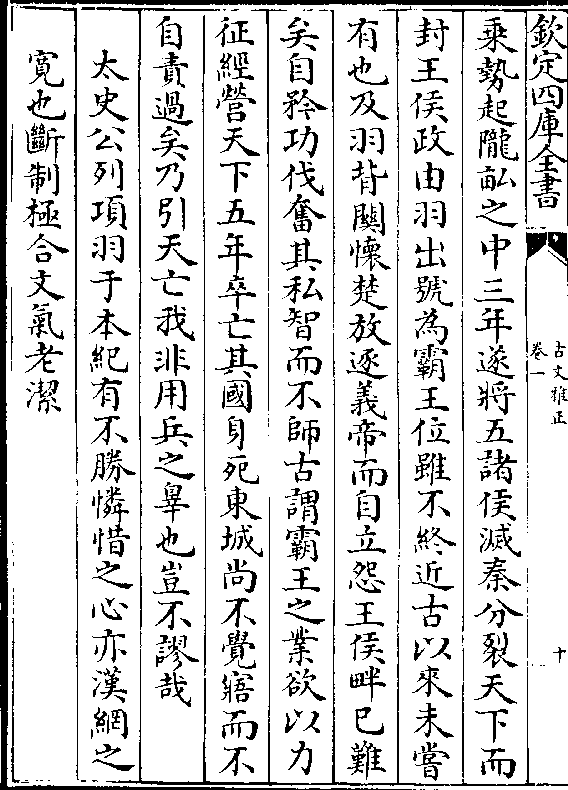 欽定四庫全書
古文雅正
卷一
十
乘勢起隴畝之中三年遂將五諸侯滅秦分裂天下而
封王侯政由羽出號為霸王位雖不終近古以來未嘗
有也及羽背關懷楚放逐義帝而自立怨王侯畔已難
矣自矜功伐奮其私智而不師古謂霸王之業欲以力
征經營天下五年卒亡其國身死東城尚不覺寤而不
自責過矣乃引天亡我非用兵之辠也豈不謬哉
太史公列項羽于本紀有不勝憐惜之心亦漢網之
寛也斷制極合文氣老潔